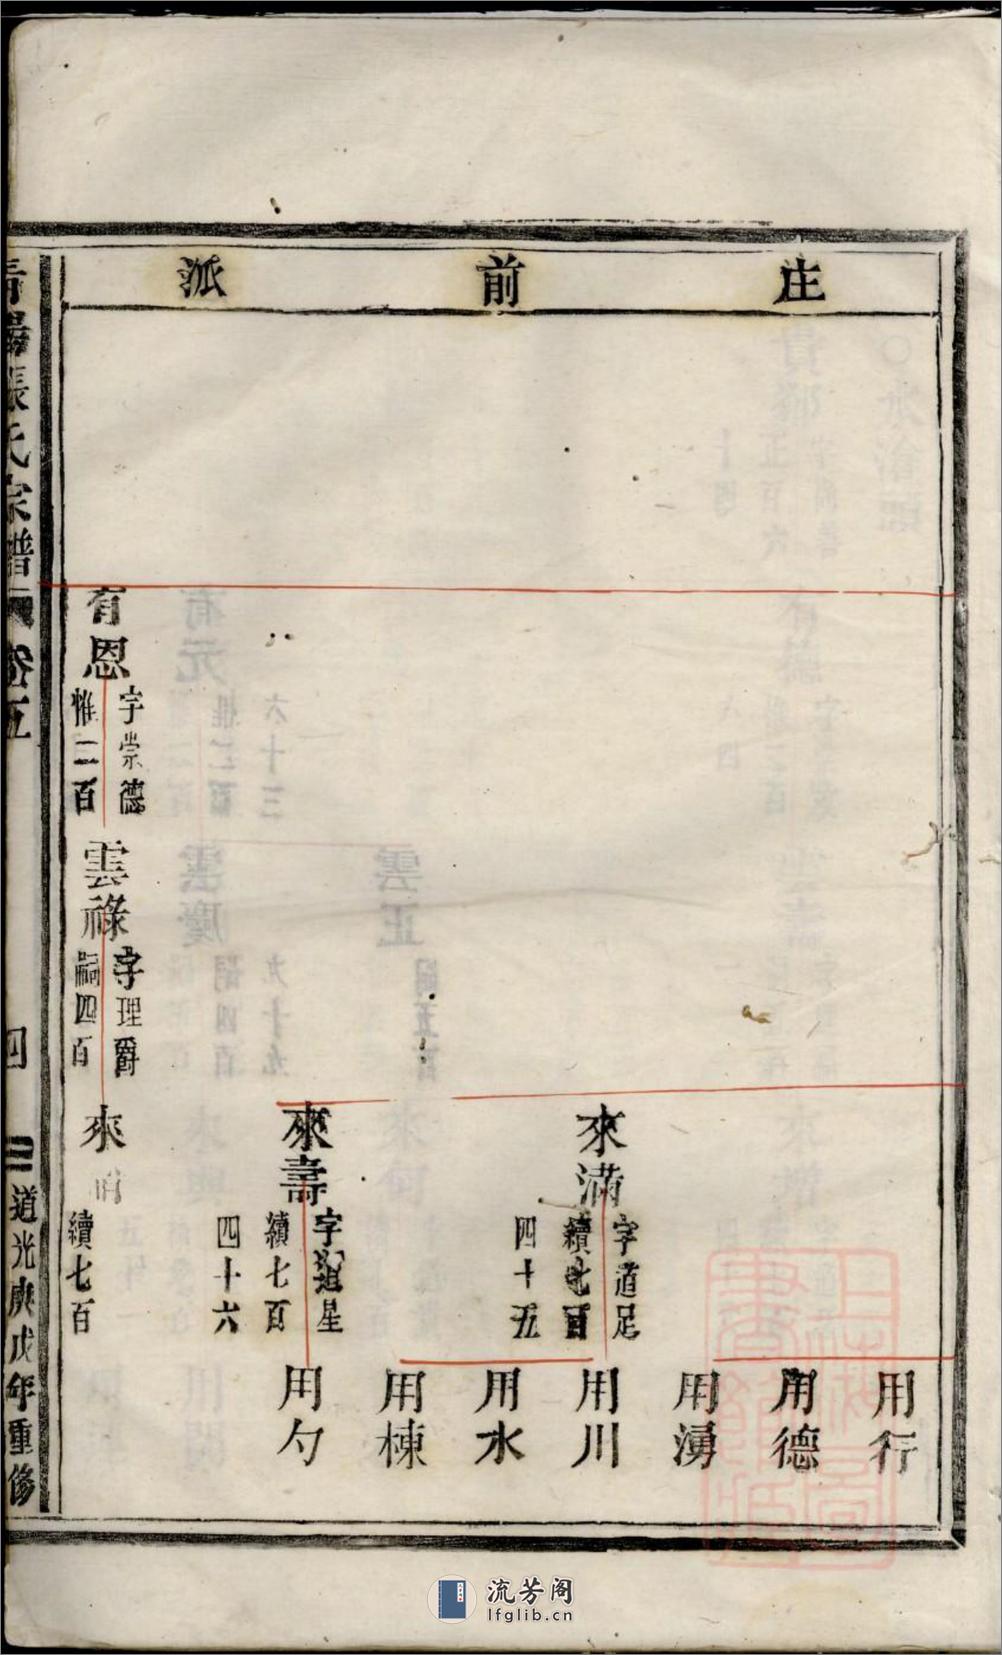 庄前派
用行
用德
用湧
來滿
字道足
續七百
四十五
用川
用水
用棟
來壽
字道星
續七百
四十六
用勺
有恩
字崇德
惟二百
雲祿
字理爵
嗣四百
來
續七百
青陽張氏宗譜
卷五
四
道光庚戌年重修
上海圖書館藏
流芳阁
lfglib.cn